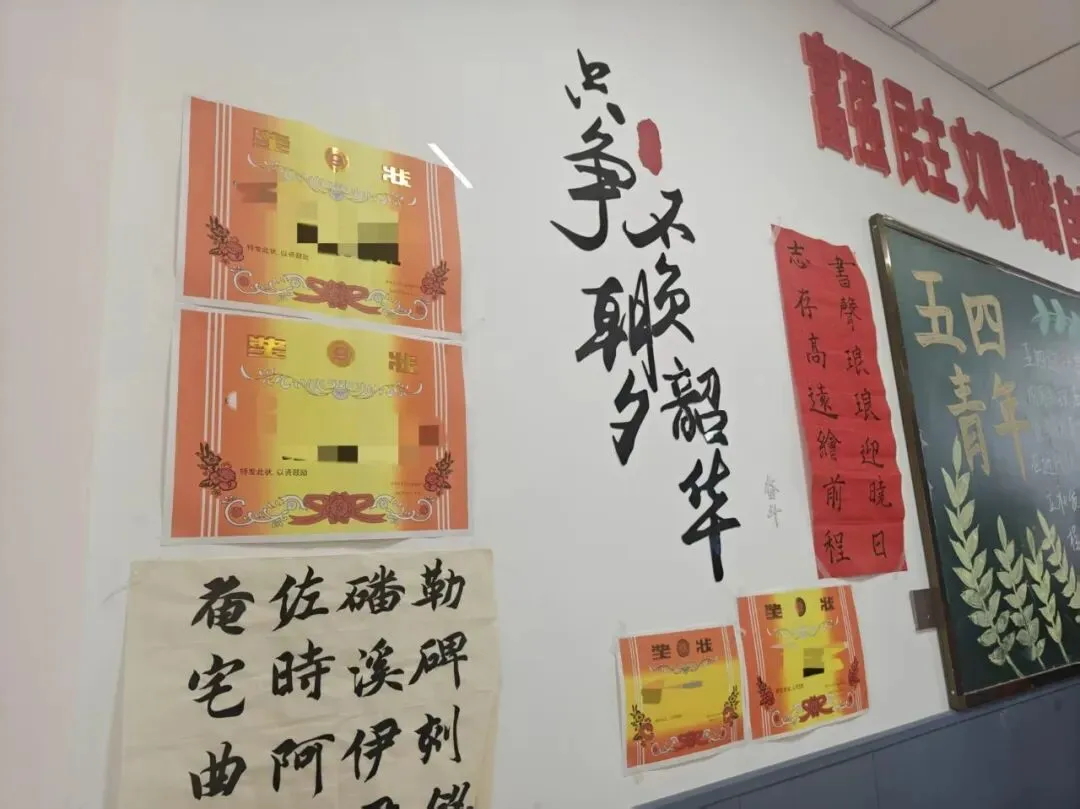 奖状
特发此状,以资鼓励
奖状
特发此状,以资鼓励
勒碑刻
磻溪伊
佐時阿
奄宅曲
只争朝夕
不负韶华
奋斗
富强民主文明和谐
書聲琅琅迎曉日
志存高遠繪前程
奖状
奖状
五四
青年